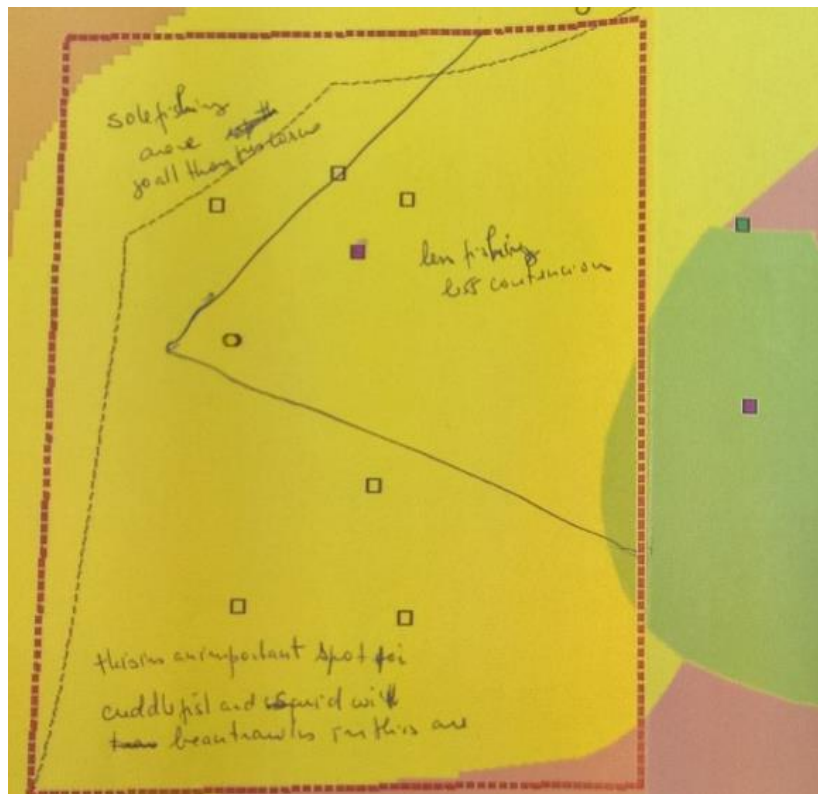 sole fishing
area
go all the
less fishing
less contencion
this is an important spot for
cuddlefisl and squid with
beamtrawls in this are